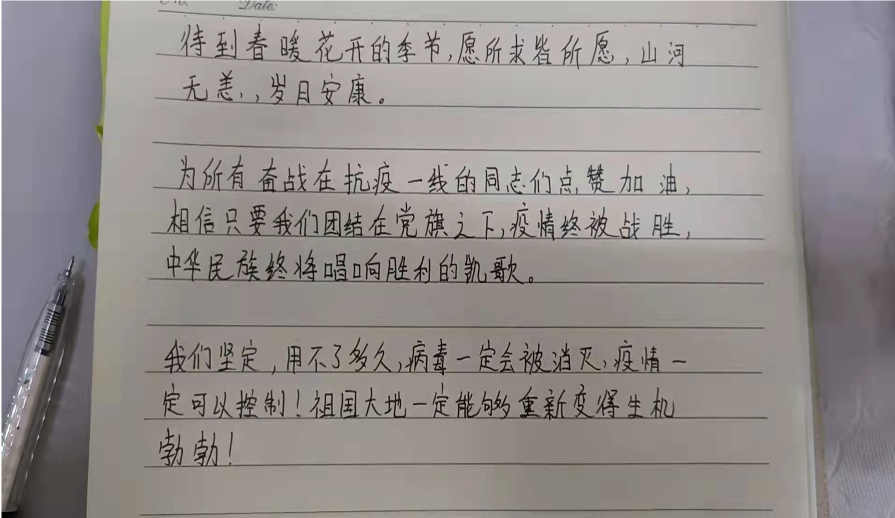 Date:
待到春暖花开的季节,愿所求皆所愿,山河
无恙,,岁日安康。
为所有奋战在抗疫一线的同志们点赞加油,
相信只要我们团结在党旗之下,疫情终被战胜,
中华民族终将唱响胜利的凯歌。
我们坚定,用不了多久,病毒一定会被消灭,疫情一
定可以控制!祖国大地一定能够重新变得生机
勃勃!